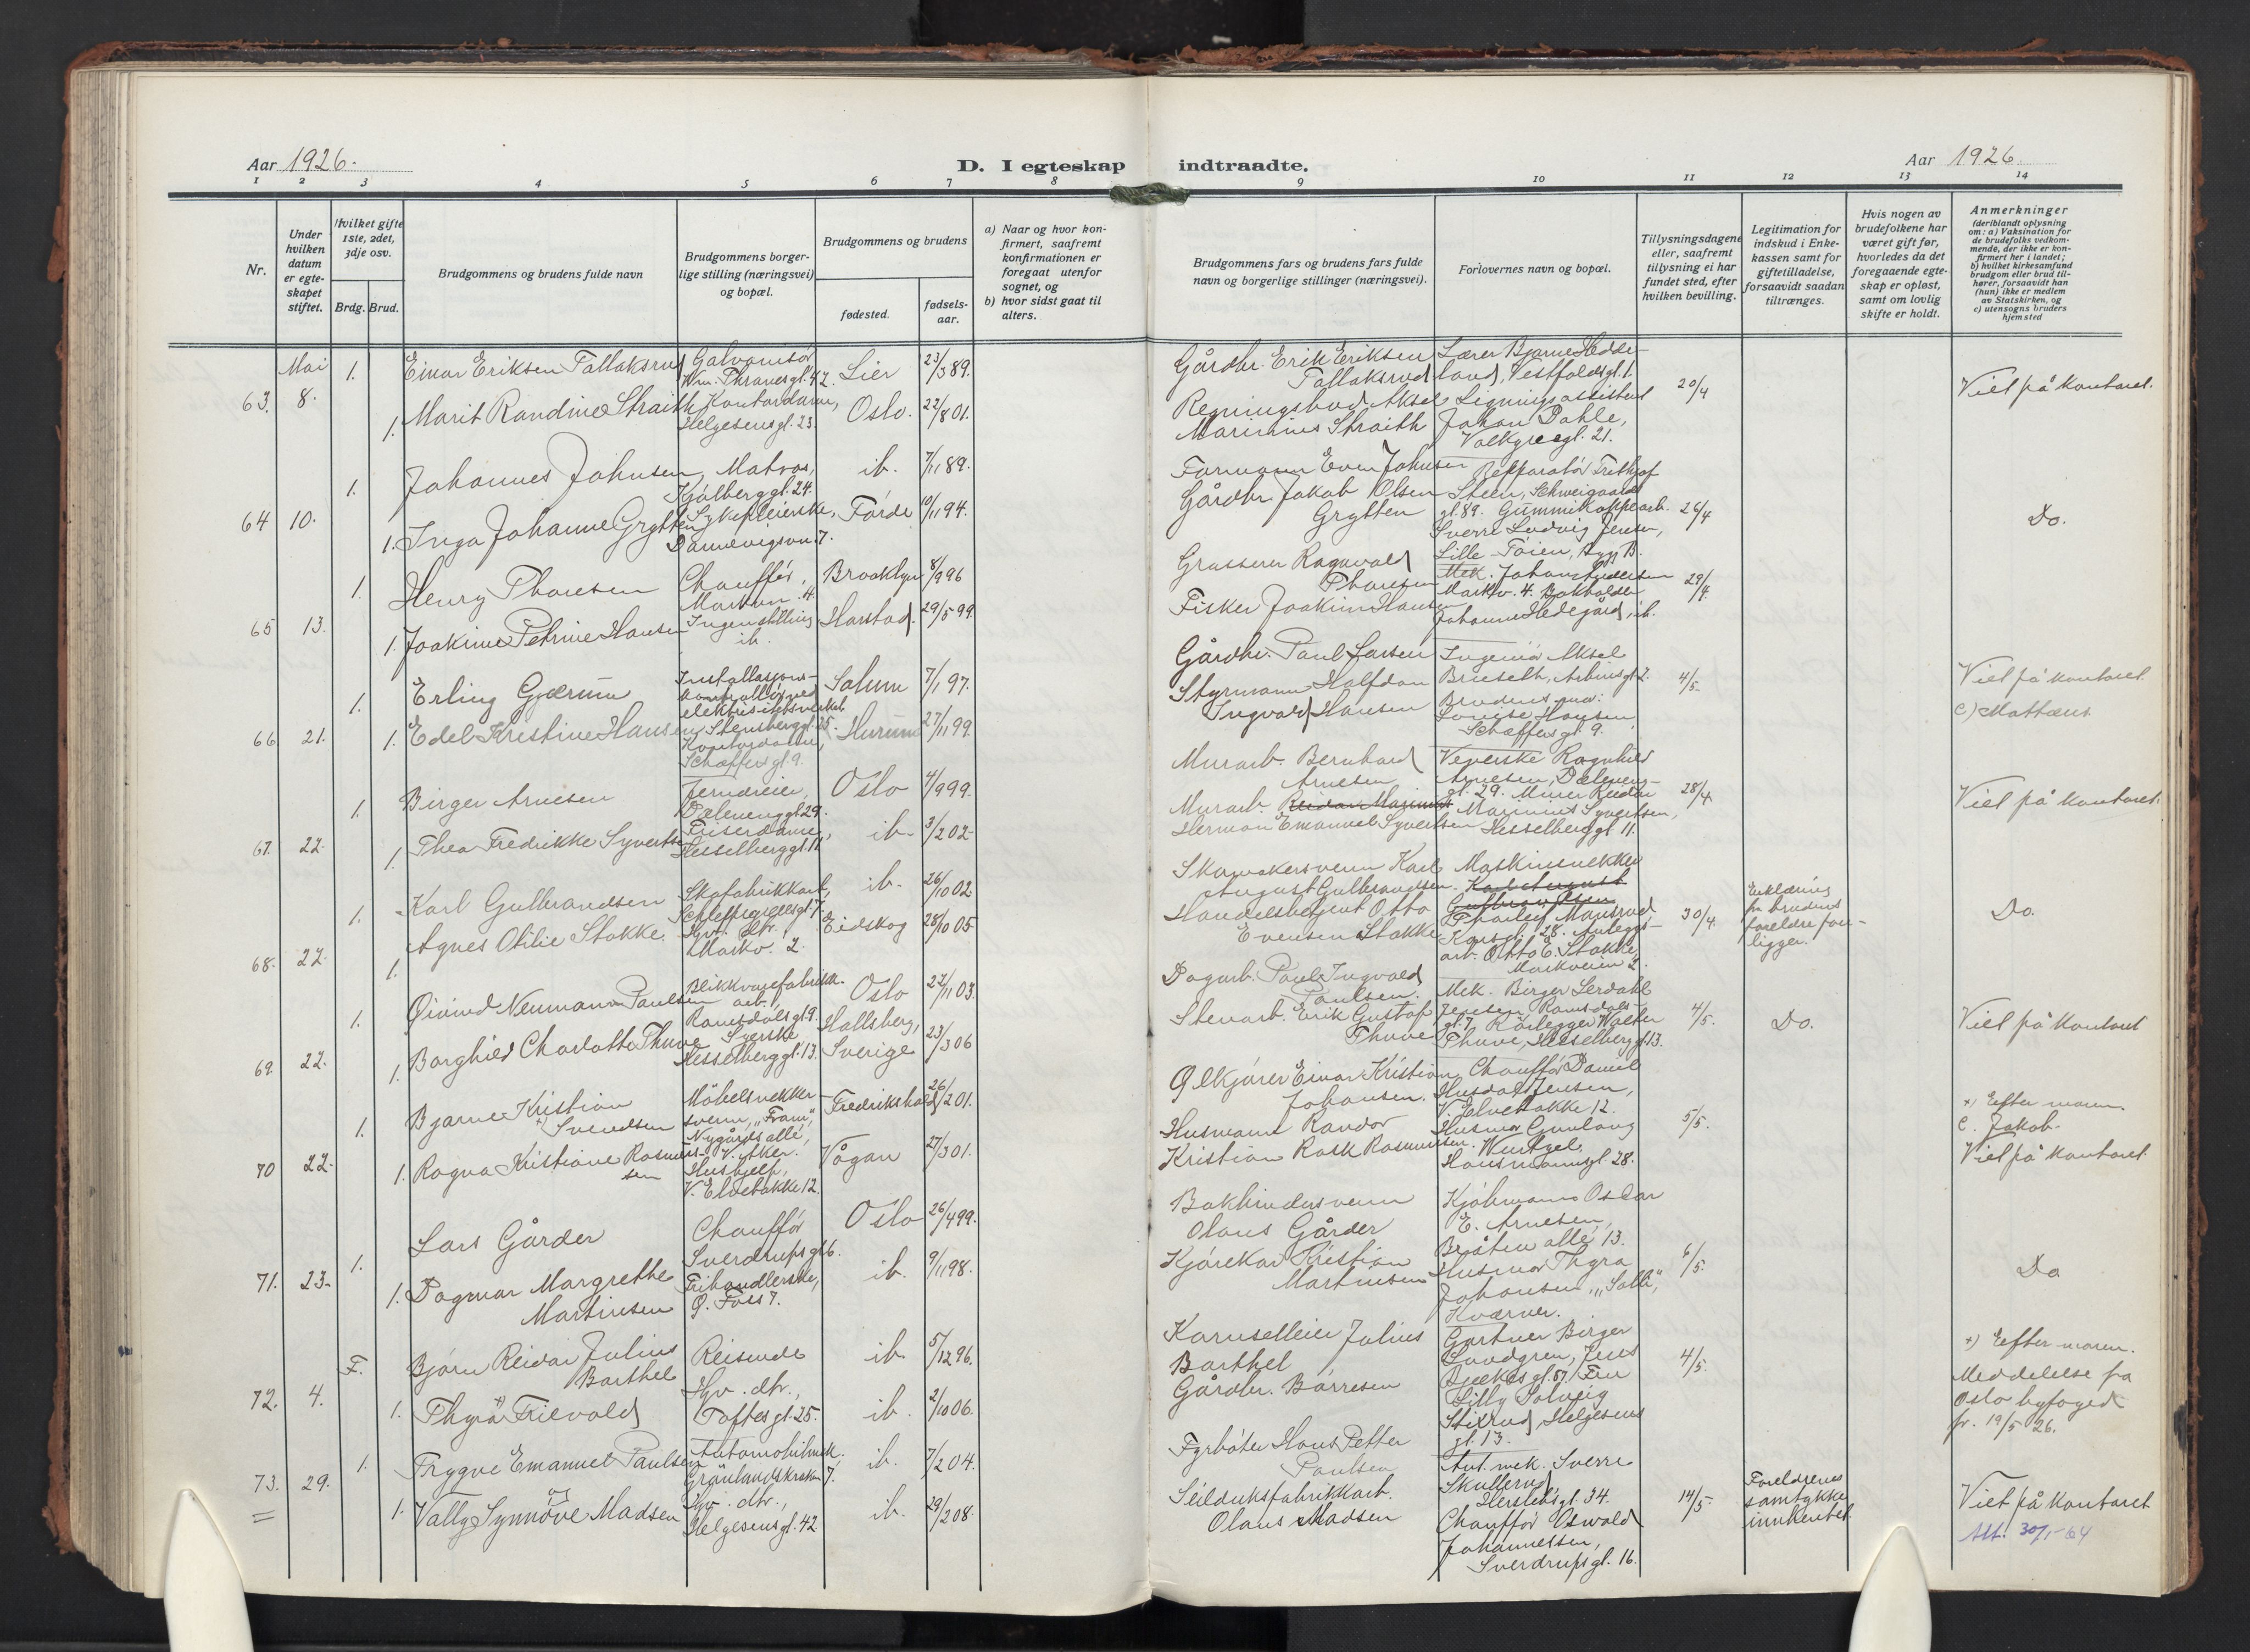 Aar 1926.
D. I egteskap indtraadte.
Aar 1926.
1 2 3 4 5 6 7 8 9 10 11 12 13 14
Nr.
Under hvilken datum er egteskapet stiftet.
Hvilket gifte 1ste, 2det, 3dje osv.
Brdg. Brud.
Brudgommens og brudens fulde navn
Brudgommens borgerlige stilling (næringsvei) og bopæl.
Brudgommens og brudens
fødested.
fødselsaar.
a) Naar og hvor konfirmert, saafremt konfirmationen er foregaat utenfor sognet, og
b) hvor sidst gaat til alters.
Brudgommens fars og brudens fars fulde navn og borgerlige stillinger (næringsvei).
Forlovernes navn og bopæl.
Tillysningsdagene eller, saafremt tillysning ei har fundet sted, efter hvilken bevilling.
Legitimation for indskud i Enkekassen samt for giftetilladelse, forsaavidt saadan tiltrænges.
Hvis nogen av brudefolkene har været gift før, hvorledes da det foregaaende egteskap er opløst, samt om lovlig skifte er holdt.
Anmerkninger (deriblandt oplysning om: a) Vaksination for de brudefolks vedkommende, der ikke er konfirmert her i landet; b) hvilket kirkesamfund brudgom eller brud tilhører, forsaavidt han (hun) ikke er medlem av Statskirken, og c) utensogns bruders hjemsted
Mai
63. 8. 1. Einar Eriksen Tallaksrud Galvanisør Wm. Thranesgt. 42. Lier 23/3 89.
1. Marit Randine Straith Kontordame, Helgesensgt. 23. Oslo. 22/8 01.
Gårdbr. Erik Eriksen Tallaksrud
Regningsbud Aksel Marinius Straith
Lærer Bjarne Heddeland, Vestfoldsgt. 1.
Ligningsassistent Johan Dahle, Valkyriegt. 21.
20/4
Viet på kontoret.
64 10. 1. Johannes Johnsen, Matros, Kjølberggt. 24. ib. 7/11 89.
1. Inga Johanne Grytten Sykepleierske, Dannevigsvn. 7. Førde 10/11 94.
Formann Even Johnsen
Gårdbr. Jakob Olsen Grytten
Repparatør Frithjof Steen, Schweigaards gt. 89. Gummikappearb. Sverre Ludvig Jensen, Lille-Tøien, Bygg B.
26/4
Do.
65 13. 1. Henry Thoresen Chauffør, Markvn. 4. Brooklyn 8/9 96
1. Joakime Petrine Hansen Ingen stilling ib. Harstad. 29/5 99.
Grosserer Ragnvald Thoresen
Fisker Joakim Hansen
Mek. Johan Andersen Markv. 4. Bokholder Johanne Hedegård, ib.
29/4.
66 21. 1. Erling Gjærum Installasjonskontrollør ved elektrisitetsverket, Stensberggt. 25. Solum 7/1 97.
1. Edel Kristine Hansen Kontordame, Schæffersgt. 9. Hurum 27/11 99.
Gårdbr. Paul Larsen
Styrmann Halfdan Ingvald Hansen
Ingeniør Aksel Bruseth, Arbinsgt. 2.
Brudens mor: Lovise Hansen, Schæffersgt. 9.
4/5.
Viet på kontoret
c) Mattæus
67. 22. 1. Birger Arnesen Jerndreier, Dælenenggt. 29. Oslo 4/9 99.
1. Thea Fredrikke Syvertsen Friserdame, Hesselberggt. 11. ib. 3/2 02.
Murarb. Bernhard Arnesen
Murarb. Reidar Marinius Herman Emanuel Syvertsen
Veverske Ragnhild Arnesen, Dælenenggt. 29. Murer Reidar Marinius Syvertsen, Hesselberggt. 11.
28/4
Viet på kontoret.
68. 22. 1. Karl Gulbrandsen Skofabrikkarb., Schleppegrellsgt. 7. ib. 26/10 02
1. Agnes Otilie Stokke. Hjv. dtr., Markv. 2. Eidskog 28/10 05
Skomakersvenn Karl August Gulbrandsen.
Handelsbetjent Otto Evensen Stokke
Maskinsnekker Karl August Gulbrandsen Thorleif Mansrud Korsgt. 28. Anleggsarb. Otto E. Stokke, Markveien 2.
30/4.
Erklæring fr. brudens foreldre foreligger.
Do.
69. 22. 1. Øivind Neumann Paulsen Blikkvarefabrikk. arb., Ramsdalsgt. 9. Oslo 22/11 03.
1. Borghild Charlotte Thuve Syerske Hesselberggt. 13. Hallsberg, Sverige 23/3 06
Dagarb. Paul Ingvald Paulsen.
Stenarb. Erik Gustaf Thuve
Mek. Birger Serdahl Jensen Ramsdalsgt. 7. Rørlegger Walter Thuve, Hesselberggt. 13.
4/5.
Do.
Viet på kontoret
70 22. 1. Bjarne Kristian x) Svendsen Møbelsnekkersvenn, "Fram", Nygårds allé, V. Aker. Fredrikshald 26/2 01.
1. Ragna Kristiane Rasmussen Hushjelp, V. Elvebakke 12. Vågan 27/3 01.
Ølkjører Einar Kristian Johansen.
Husmann Randor Kristian Rask Rasmussen.
Chauffør Daniel Husdal Jensen, V. Elvebakke 12.
Husmor Gunlaug Wentzel, Hausmannsgt. 28.
5/5.
x) Efter moren.
c. Jakob.
Viet på kontoret.
71. 23. 1. Lars Gårder Chauffør Sverdrupsgt. 6. Oslo 26/4 99.
1. Dagmar Margrethe Martinsen Frihandlerske, Ø. Foss 7. ib. 9/11 98.
Bokbindersvenn Olaus Gårder
Kjørekar Kristian Martinsen
Kjøbmann Oskar E. Arnesen, Bråten allé 13.
Husmor Thyra Johansen, "Solli", Kværner.
6/5.
Do
72. 4. F. Bjørn Reidar Julius Barthel Reisende ib. 5/12 96.
1. Thyra x) Frievold Hjv. dtr., Toftesgt. 25. ib. 2/10 06.
Karuselleier Julius Barthel
Gårdbr. Børresen
Gartner Birger Lundgren, Jens Bjelkesgt. 57. Fru Lilly Solveig Stixrud, Helgesens gt. 13.
4/5.
x) Efter moren.
Meddelelse fra Oslo byfoged fr. 19/5 26.
73. 29. 1. Trygve Emanuel Paulsen Automobilmek. Grønlandskroken 7. ib. 7/2 04.
1. Vally Synnøve Madsen Hjv. dtr., Helgesensgt. 42. ib. 29/2 08.
Fyrbøter Hans Petter Paulsen
Seilduksfabrikkarb. Olaus Madsen
Aut. mek. Sverre Skullerud Herslebsgt. 34.
Chauffør Oswald Johannessen, Sverdrupsgt. 16.
14/5.
Foreldrenes samtykke innhentet.
Viet på kontoret
Att. 30/1-64